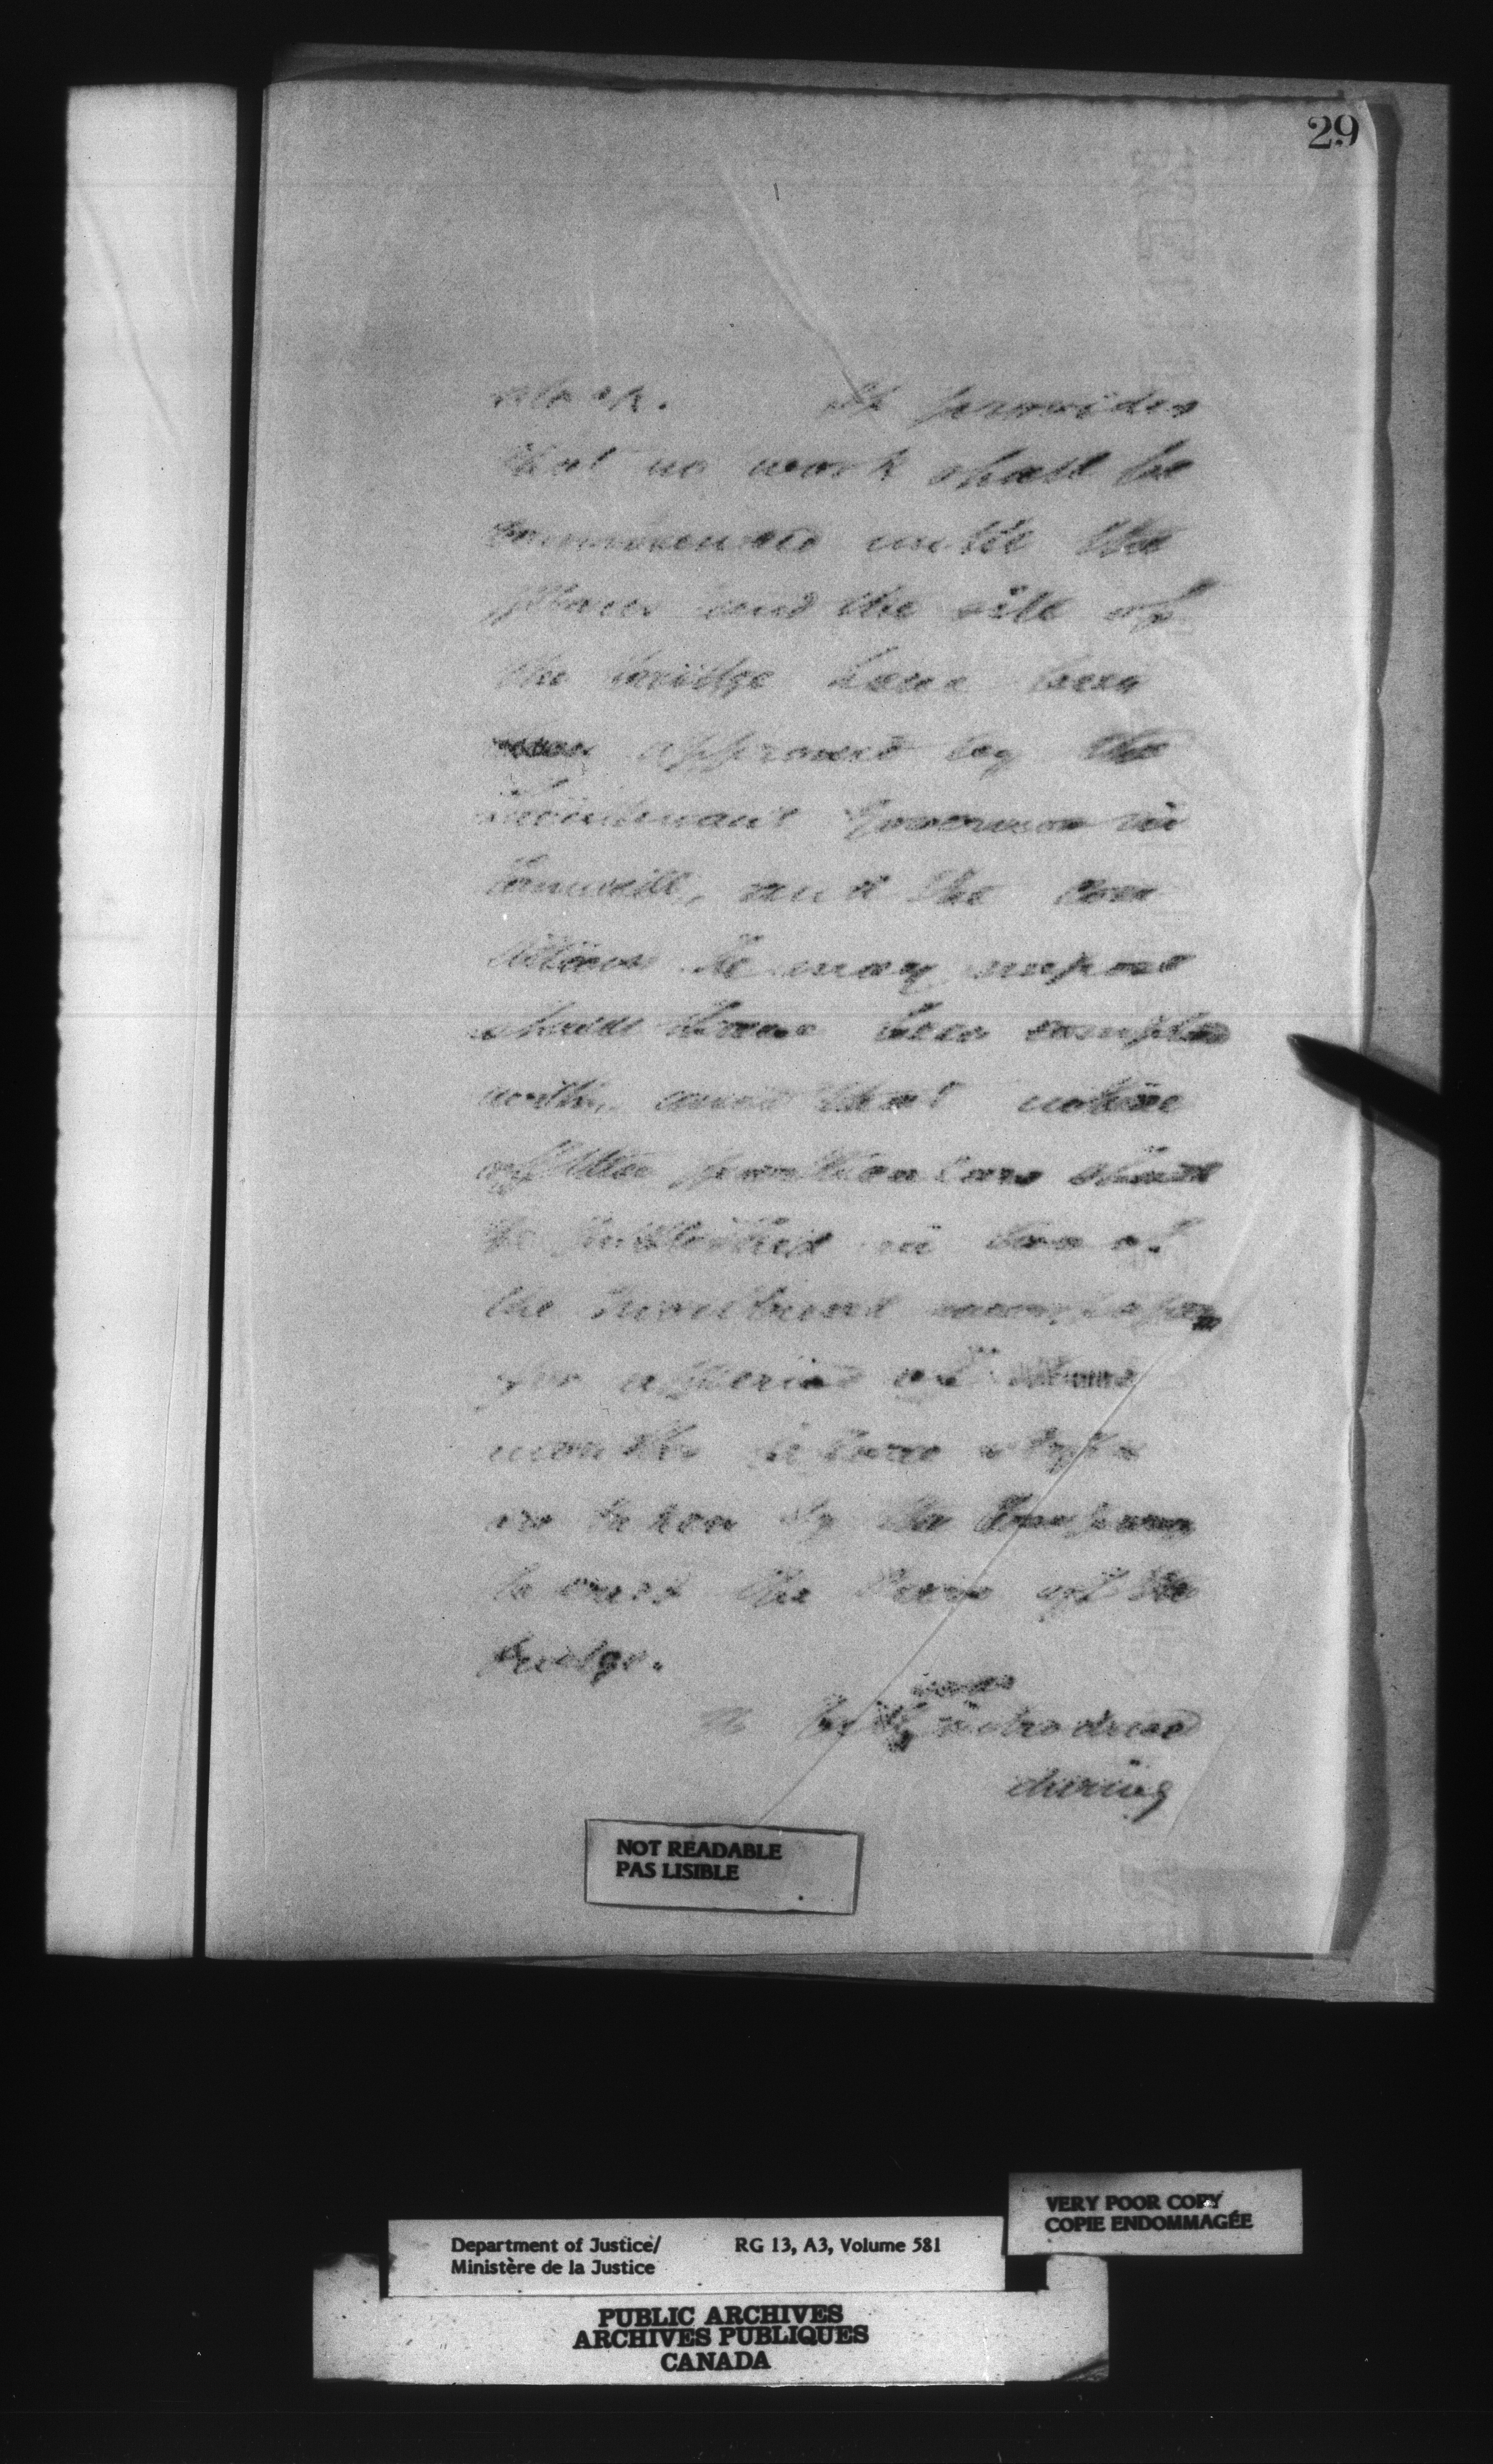 29
It provides
that no work shall be
commenced until the
plans and the site of
the bridge have been
approved by the
Lieutenant Governor in
Council, and the con
ditions he may impose
shall have been complied
with, and that notice
of the particulars shall
be published in two of
the Montreal newspapers
for a period of
months before steps
are taken by the Company
the of the
bridge.
was
A Bill introduced
during
NOT READABLE
PAS LISIBLE
VERY POOR COPY
COPIE ENDOMMAGÉE
Department of Justice/ RG 13, A3, Volume 581
Ministère de la Justice
PUBLIC ARCHIVES
ARCHIVES PUBLIQUES
CANADA